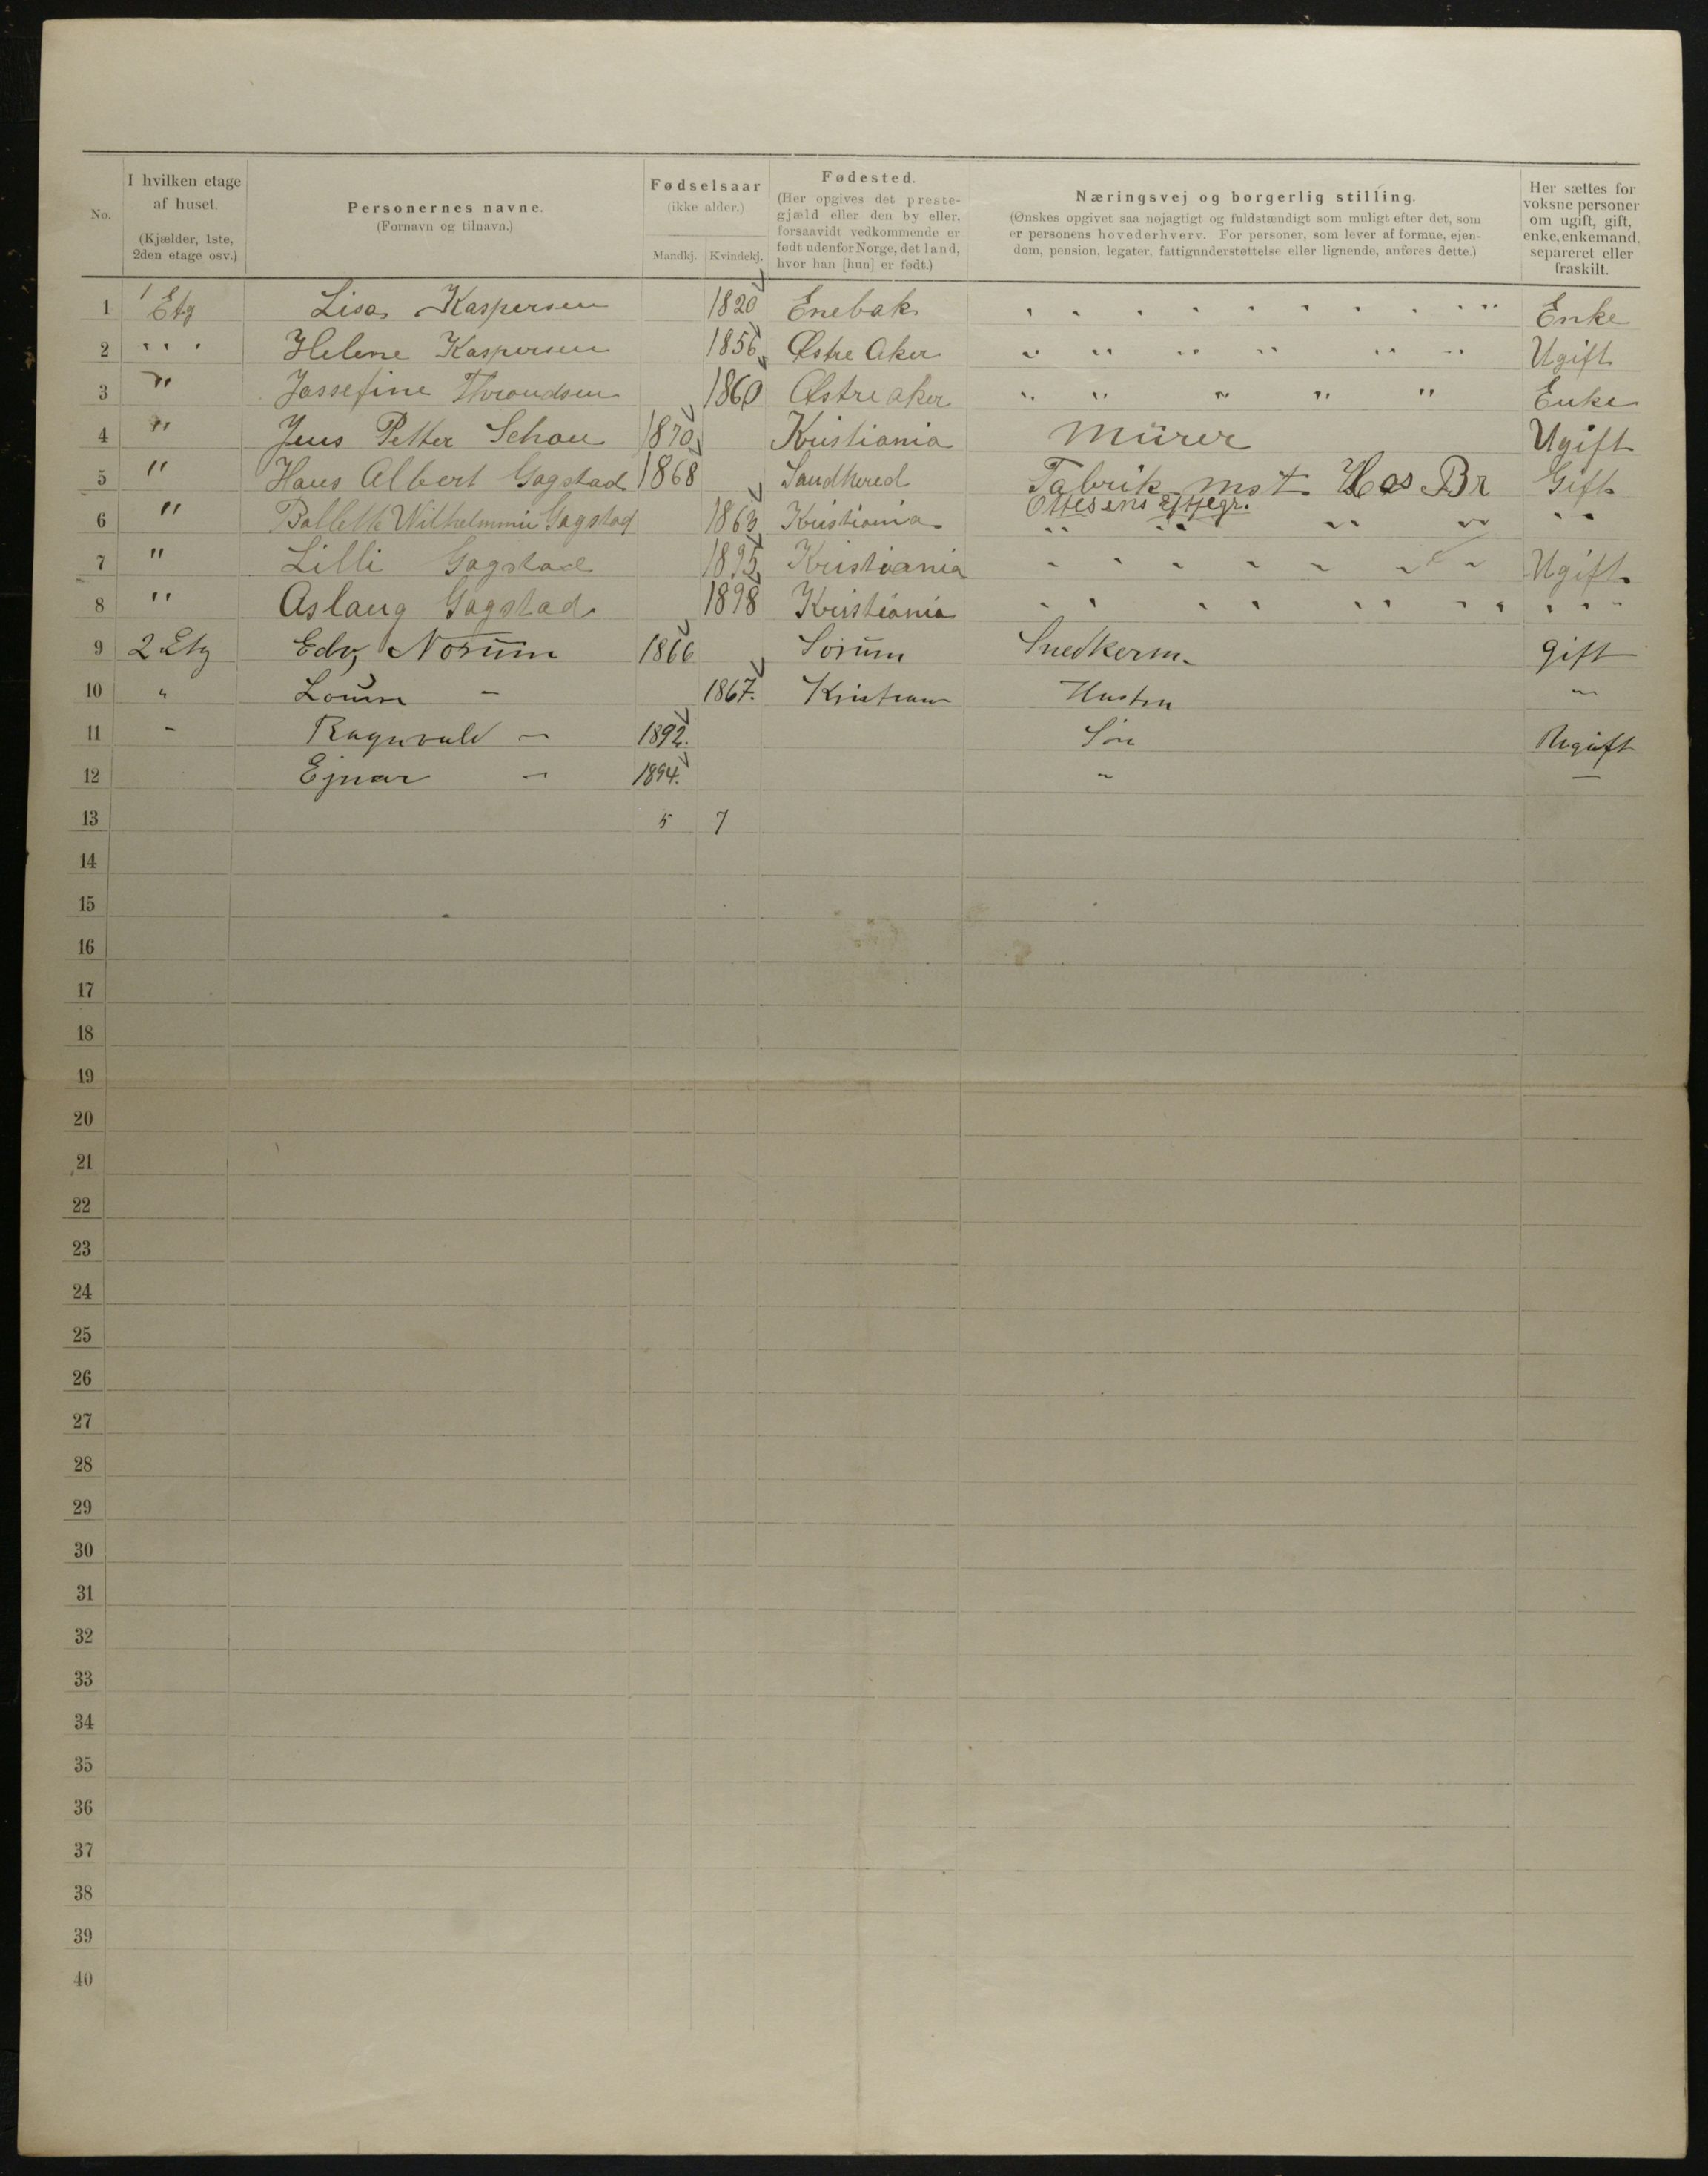 No.
I hvilken etage
af huset.
(Kjælder, 1ste,
2den etage osv.)
Personernes navne.
(Fornavn og tilnavn.)
Fødselsaar
(ikke alder.)
Mandkj. Kvindekj.
Fødested.
(Her opgives det preste-
gjæld eller den by eller,
forsaavidt vedkommende er
født udenfor Norge, det land,
hvor han [hun] er født.)
Næringsvej og borgerlig stilling.
(Ønskes opgivet saa nøjagtigt og fuldstændigt som muligt efter det, som
er personens hovederhverv. For personer, som lever af formue, ejen-
dom, pension, legater, fattigunderstøttelse eller lignende, anføres dette.)
Her sættes for
voksne personer
om ugift, gift,
enke, enkemand,
separeret eller
fraskilt.
1 1 Etg Lisa Kaspersen 1820 Enebak " " " " " " " " " " Enke
2 " " " Helene Kaspersen 1856 Østre Aker " " " " " " Ugift
3 " Jossefine Throndsen 1860 Østre aker " " " " " Enke
4 " Jens Petter Schou 1870 Kristiania Mürer Ugift
5 " Hans Albert Gagstad 1868 Sandhered Fabrik mst Hos Br Gift
Ottesens eftfegr.
6 " Bollette Wilhelmmie Gagstad 1863 Kristiania " " " " " "
7 " Lilli Gagstad 1895 Kristiania " " " " " " " Ugift
8 " Aslaug Gagstad 1898 Kristiania " " " " " " " " " " "
9 2 Etg Edv, Norum 1866 Sorum Snedkerm. gift
10 " - 1867. Hustru "
11 - Ragnvald - 1892. Søn Ugift
12 Ejnar - 1894. " -
13 5 7
14
15
16
17
18
19
20
21
22
23
24
25
26
27
28
29
30
31
32
33
34
35
36
37
38
39
40